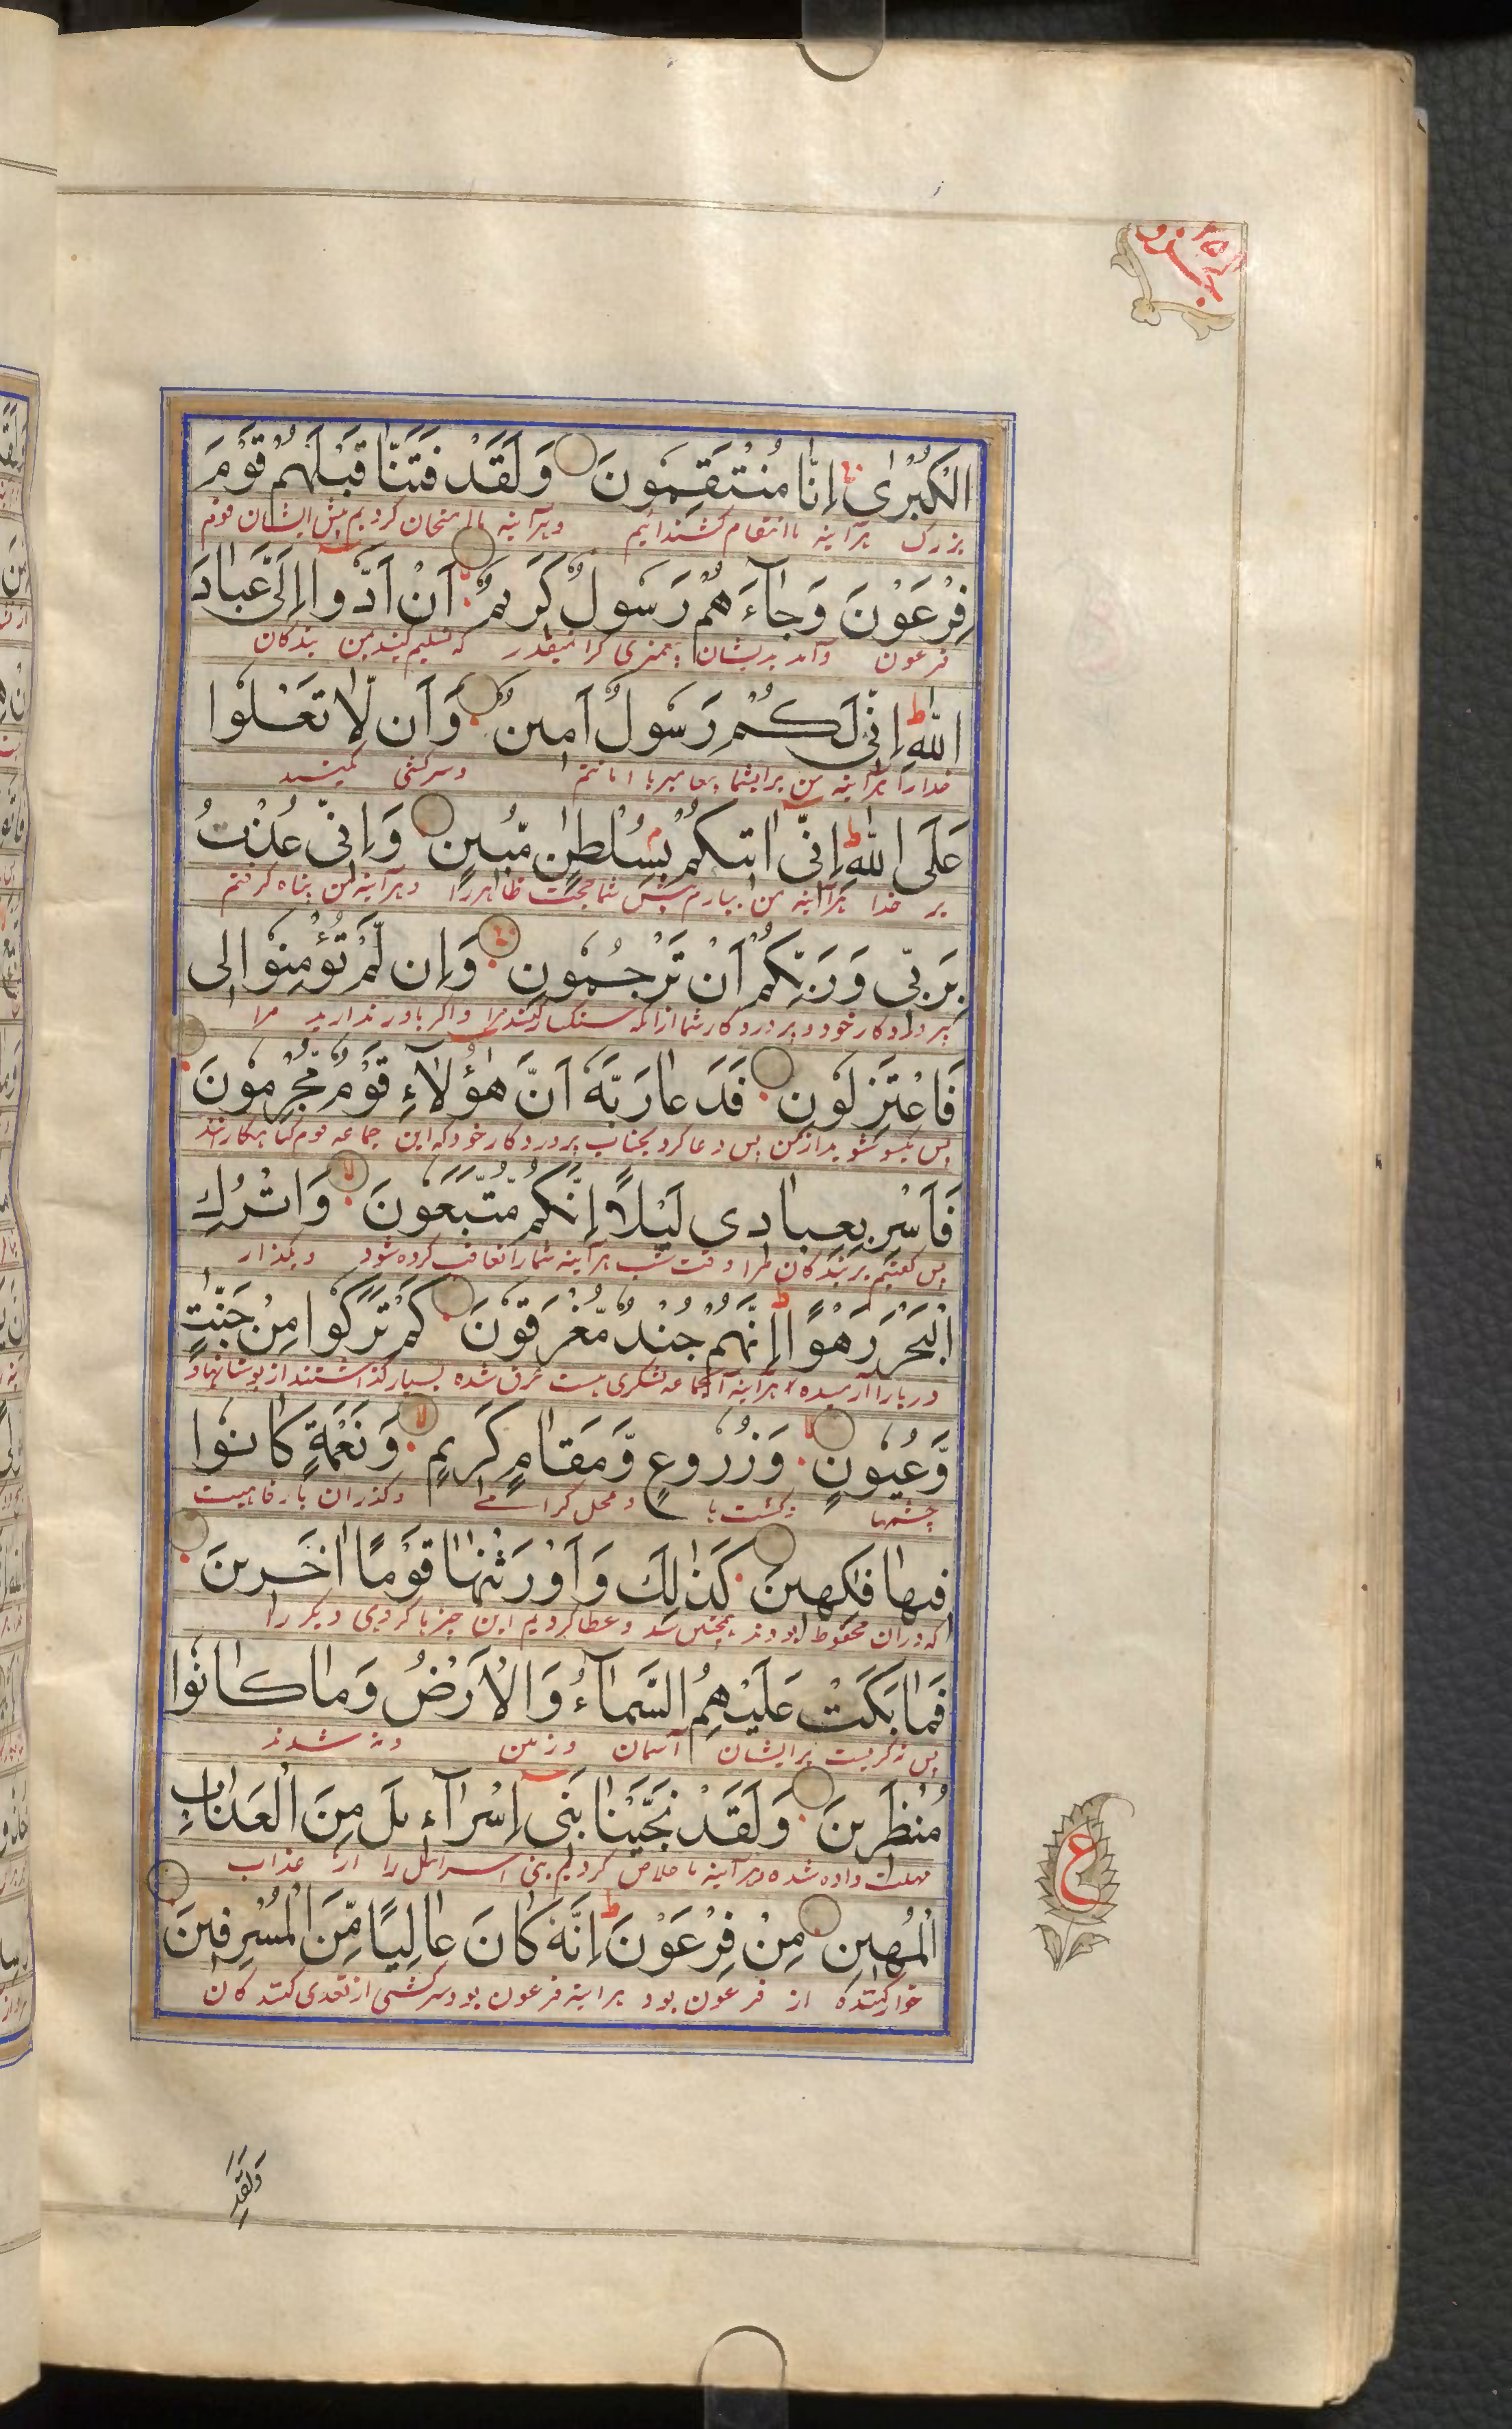 الْكُبْرٰى اِنَّا مُنْتَقِمُونَ وَلَقَدْ فَتَنَّا قَبْلَهُمْ قَوْمَ
بزرگ هرآینه ما انتقام کشنده‌ایم و هرآینه ما امتحان کردیم پیش ایشان قوم
فِرْعَوْنَ وَجَآءَهُمْ رَسُولٌ كَرِيمٌ اَنْ اَدُّوا اِلَیَّ عِبَادَ
فرعون و آمد بدیشان پیغمبری گرانقدر که تسلیم کنید بمن بندگان
اللّٰهِ اِنِّی لَكُمْ رَسُولٌ اَمِينٌ وَاَن لَّا تَعْلُوا
خدا را هرآینه من برای شما پیغامبر با امانتم و سرکشی مکنید
عَلَى اللّٰهِ اِنِّی اٰتِيكُمْ بِسُلْطٰنٍ مُّبِينٍ وَاِنِّی عُذْتُ
بر خدا هرآینه من بیارم پیش شما حجت ظاهر را و هرآینه من پناه گرفتم
بِرَبِّی وَرَبِّكُمْ اَنْ تَرْجُمُونِ وَاِن لَّمْ تُؤْمِنُوا لِی
بپروردگار خود و پروردگار شما از آنکه سنگسار کنید مرا و اگر باور ندارید مرا
فَاعْتَزِلُونِ فَدَعَا رَبَّهٗ اَنَّ هٰٓؤُلَآءِ قَوْمٌ مُّجْرِمُونَ
پس یکسو شوید از من پس دعا کرد بجناب پروردگار خود که این جماعه قوم گناهکارانند
فَاَسْرِ بِعِبَادِی لَيْلًا اِنَّكُمْ مُّتَّبَعُونَ وَاتْرُكِ
پس گفتیم ببر بندگان مرا وقت شب هرآینه شما را تعاقب کرده شود و بگذار
الْبَحْرَ رَهْوًا اِنَّهُمْ جُنْدٌ مُّغْرَقُونَ كَمْ تَرَكُوا مِنْ جَنّٰتٍ
دریا را آرمیده هرآینه آنجماعه لشکری هست غرق شده بسیار گذاشتند از بوستانها و
وَّعُيُونٍ وَزُرُوعٍ وَّمَقَامٍ كَرِيمٍ وَنَعْمَةٍ كَانُوا
چشمها و کشت‌ها و محل گرامی و گذران با رفاهیت
فِيهَا فٰكِهِينَ كَذٰلِكَ وَاَوْرَثْنٰهَا قَوْمًا اٰخَرِينَ
که در آن محظوظ بودند همچنین شد و عطا کردیم این چیزها گروهی دیگر را
فَمَا بَكَتْ عَلَيْهِمُ السَّمَآءُ وَالْاَرْضُ وَمَا كَانُوا
پس نه گریست بر ایشان آسمان و زمین و نه شدند
مُنْظَرِينَ وَلَقَدْ نَجَّيْنَا بَنِی اِسْرَآءِيلَ مِنَ الْعَذَابِ
مهلت داده شده و هرآینه ما خلاص کردیم بنی اسرائیل را از عذاب
الْمُهِينِ مِنْ فِرْعَوْنَ اِنَّهٗ كَانَ عَالِيًا مِّنَ الْمُسْرِفِينَ
خوارکننده از فرعون بود هرآینه فرعون بود سرکشی از تعدی کنندگان
ع
وَلَقَدِ